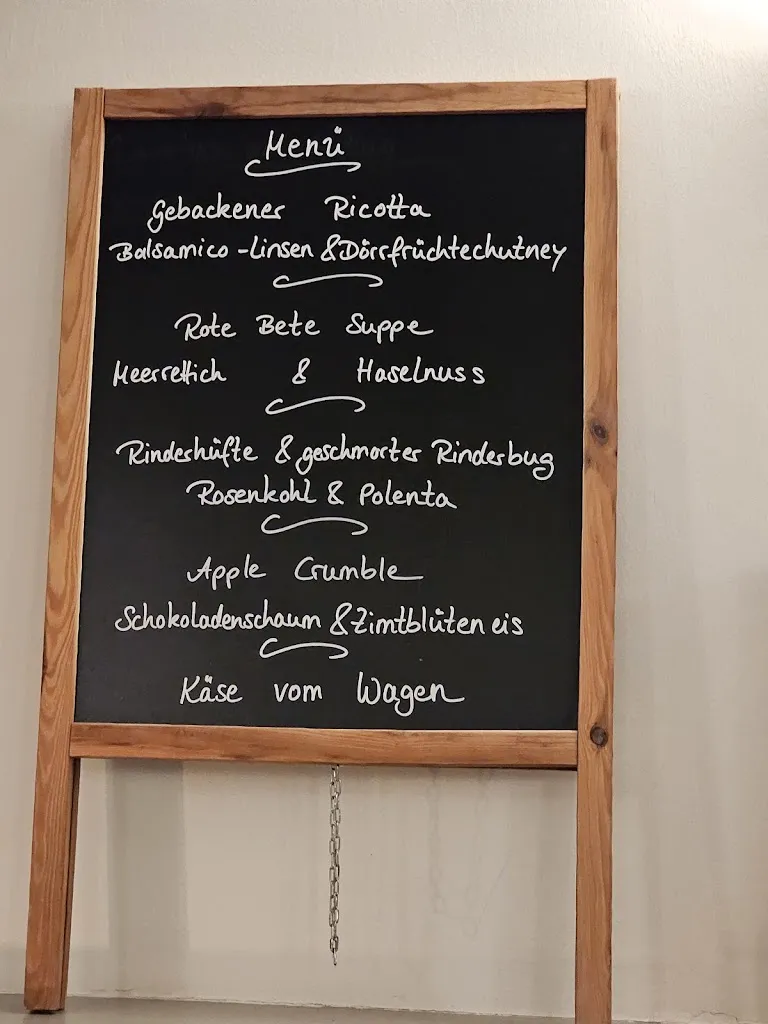 Menü
Gebackener Ricotta
Balsamico-Linsen & Dörrfrüchtechutney
Rote Bete Suppe
Meerrettich & Haselnuss
Rinderhüfte & geschmorter Rinderbug
Rosenkohl & Polenta
Apple Crumble
Schokoladenschaum & Zimtblüteneis
Käse vom Wagen